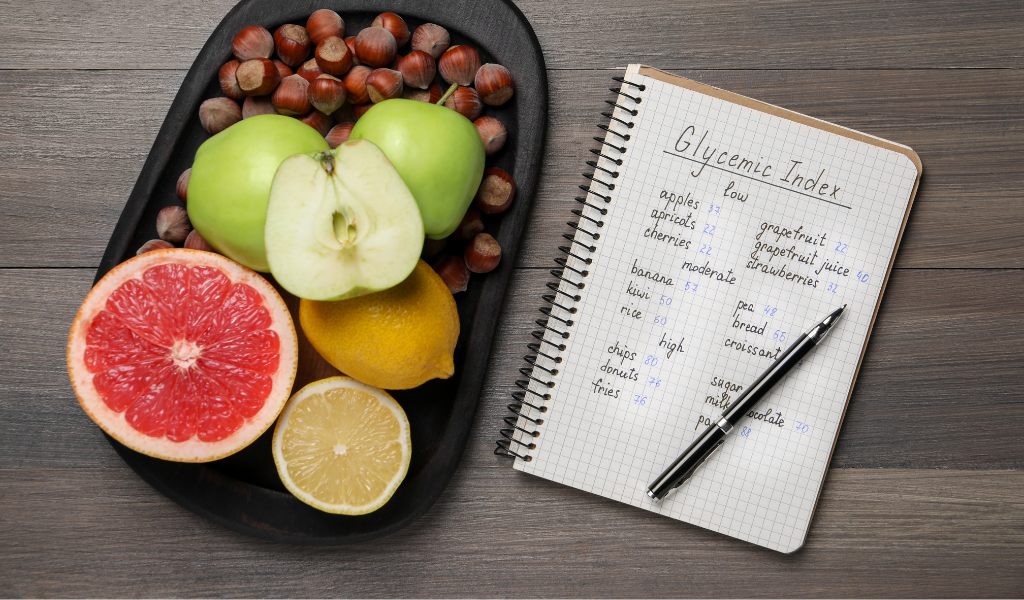 Glycemic Index
low
apples 37
apricots 22
cherries 22
grapefruit 22
grapefruit juice 40
strawberries 32
moderate
banana 57
kiwi 50
rice 60
pea 48
bread 55
croissant
high
chips 80
donuts 76
fries 76
sugar
70
88